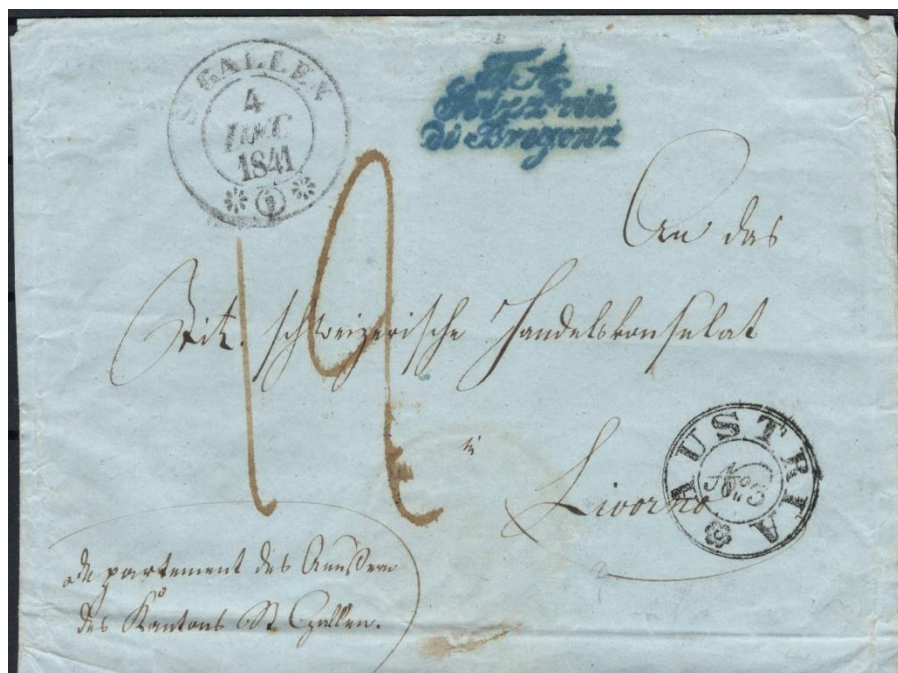 ST GALLEN
4
DEC
1841
1
di Bregenz
An das
Titl. schweizerische Handelskonsulat
in
Livorno
AUSTRIA
No 3
19
Departement des Aeussern
des Kantons St Gallen.